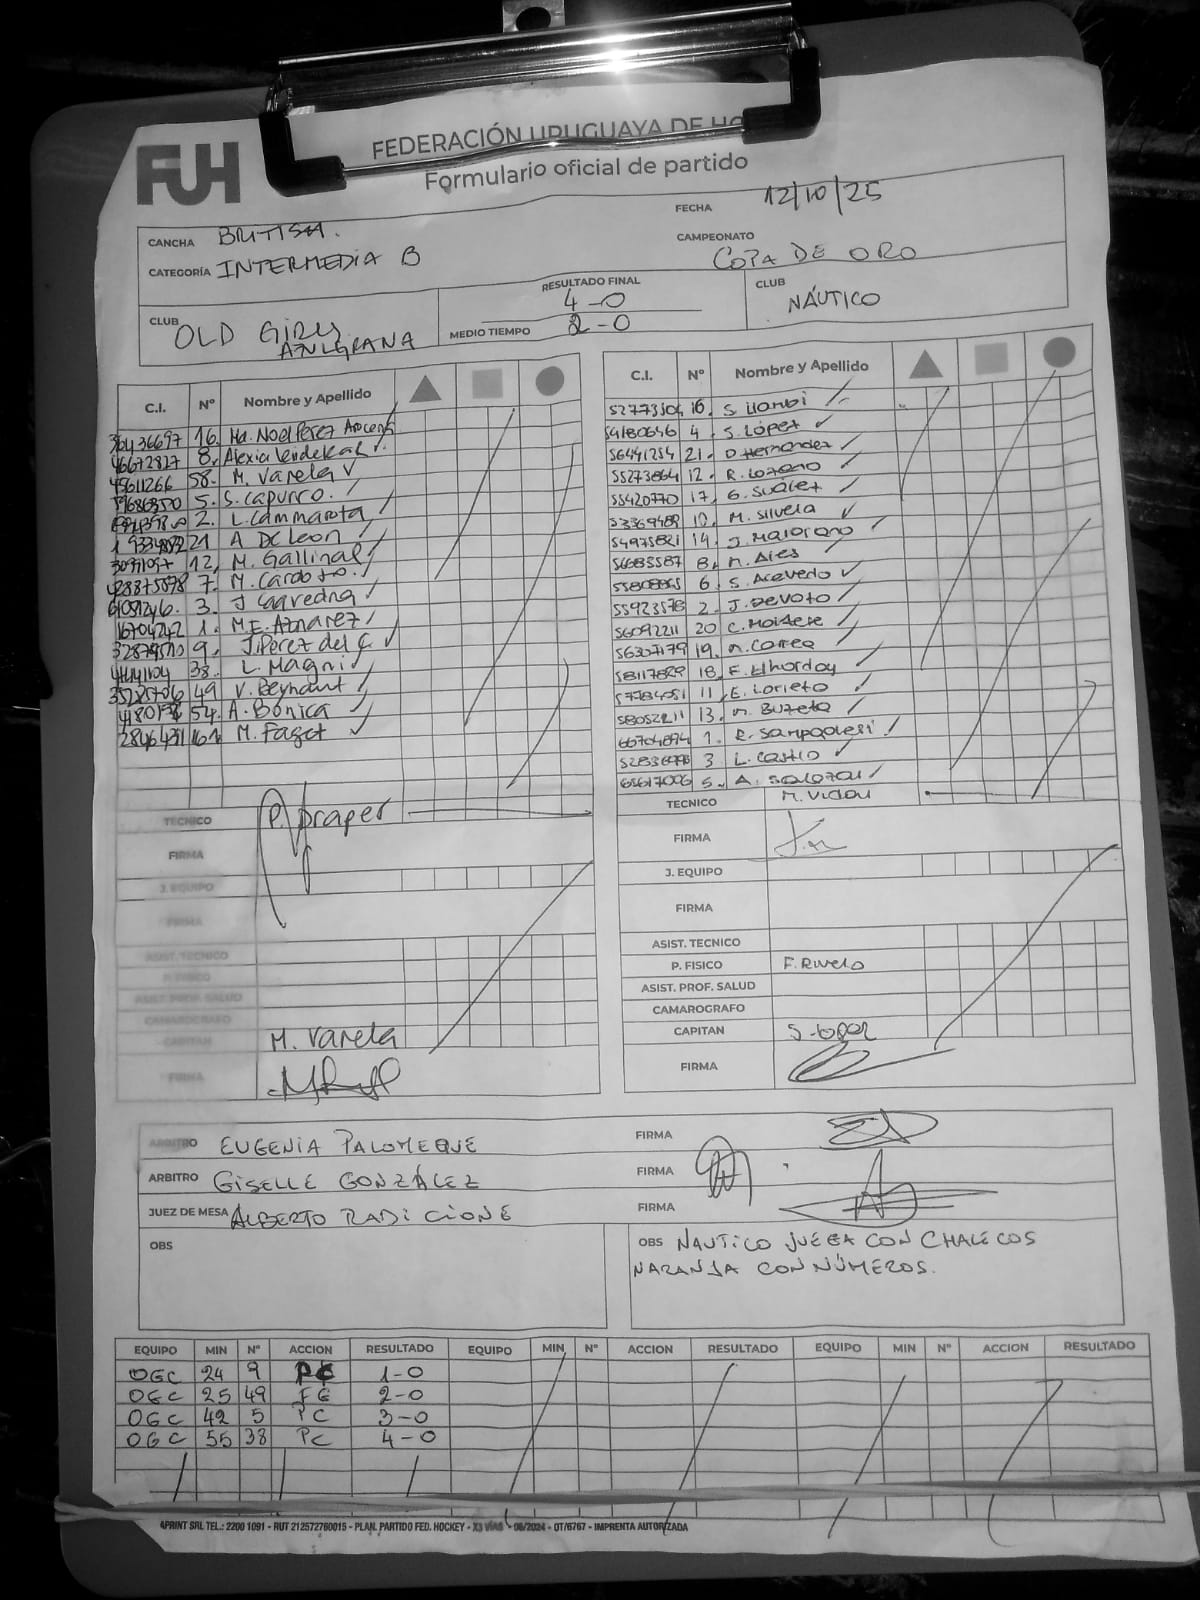 FUH
FEDERACIÓN URUGUAYA DE HO
Formulario oficial de partido
FECHA 12/10/25
CANCHA BRITISH.
CAMPEONATO COPA DE ORO
CATEGORÍA INTERMEDIA B
CLUB OLD GIRLS AZULGRANA
RESULTADO FINAL 4-0
MEDIO TIEMPO 2-0
CLUB NÁUTICO
C.I. Nº Nombre y Apellido
16. Ma. Noel Perez
46672827 8. Alexia
45611266 58. M. Varela
5. S. Capurro.
2. L. Cammarota
21 A DeLeon
12, M. Gallinal
7. M. Cardoso.
3. J Saavedra
16704242 1. M.E. Aznarez
9. J. Perez del C.
38. L. Magni
49 V. Beyhaut
54. A. Bonica
M. Faget
TECNICO P. Draper
FIRMA
J. EQUIPO
FIRMA
ASIST. TECNICO
P. FISICO
ASIST. PROF. SALUD
CAMAROGRAFO
CAPITAN M. Varela
FIRMA
C.I. Nº Nombre y Apellido
16. S.
54180646 4. S. López
56441254 21. D. Hernandez
55273864 12. R. Lozano
55420770 17. G. Suárez
53369489 10. M. Silvera
54975821 14. J. Maiorano
56685587 8. M. Aies
6. S. Acevedo
55923578 2. J. Devoto
56092211 20 C.
56307179 19. M. Correa
58117829 18. F. Elhorday
11. E. Lorieto
13. M. Buzeta
66704894 1. R. Sampaolesi
3 L. Castro
65617006 5. A. Salazar
TECNICO M. Vidal
FIRMA
J. EQUIPO
FIRMA
ASIST. TECNICO
P. FISICO F. Rivero
ASIST. PROF. SALUD
CAMAROGRAFO
CAPITAN S. Lopez
FIRMA
ARBITRO EUGENIA PALOMEQUE FIRMA
ARBITRO GISELLE GONZÁLEZ FIRMA
JUEZ DE MESA ALBERTO RADICIONE FIRMA
OBS
OBS NAUTICO JUEGA CON CHALECOS
NARANJA CON NÚMEROS.
EQUIPO MIN Nº ACCION RESULTADO EQUIPO MIN Nº ACCION RESULTADO EQUIPO MIN Nº ACCION RESULTADO
OGC 24 9 PC 1-0
OGC 25 49 FG 2-0
OGC 42 5 PC 3-0
OGC 55 38 PC 4-0
4PRINT SRL TEL.: 2200 1091 - RUT 212572760015 - PLAN. PARTIDO FED. HOCKEY - X3 VÍAS - 06/2024 - OT/6767 - IMPRENTA AUTORIZADA